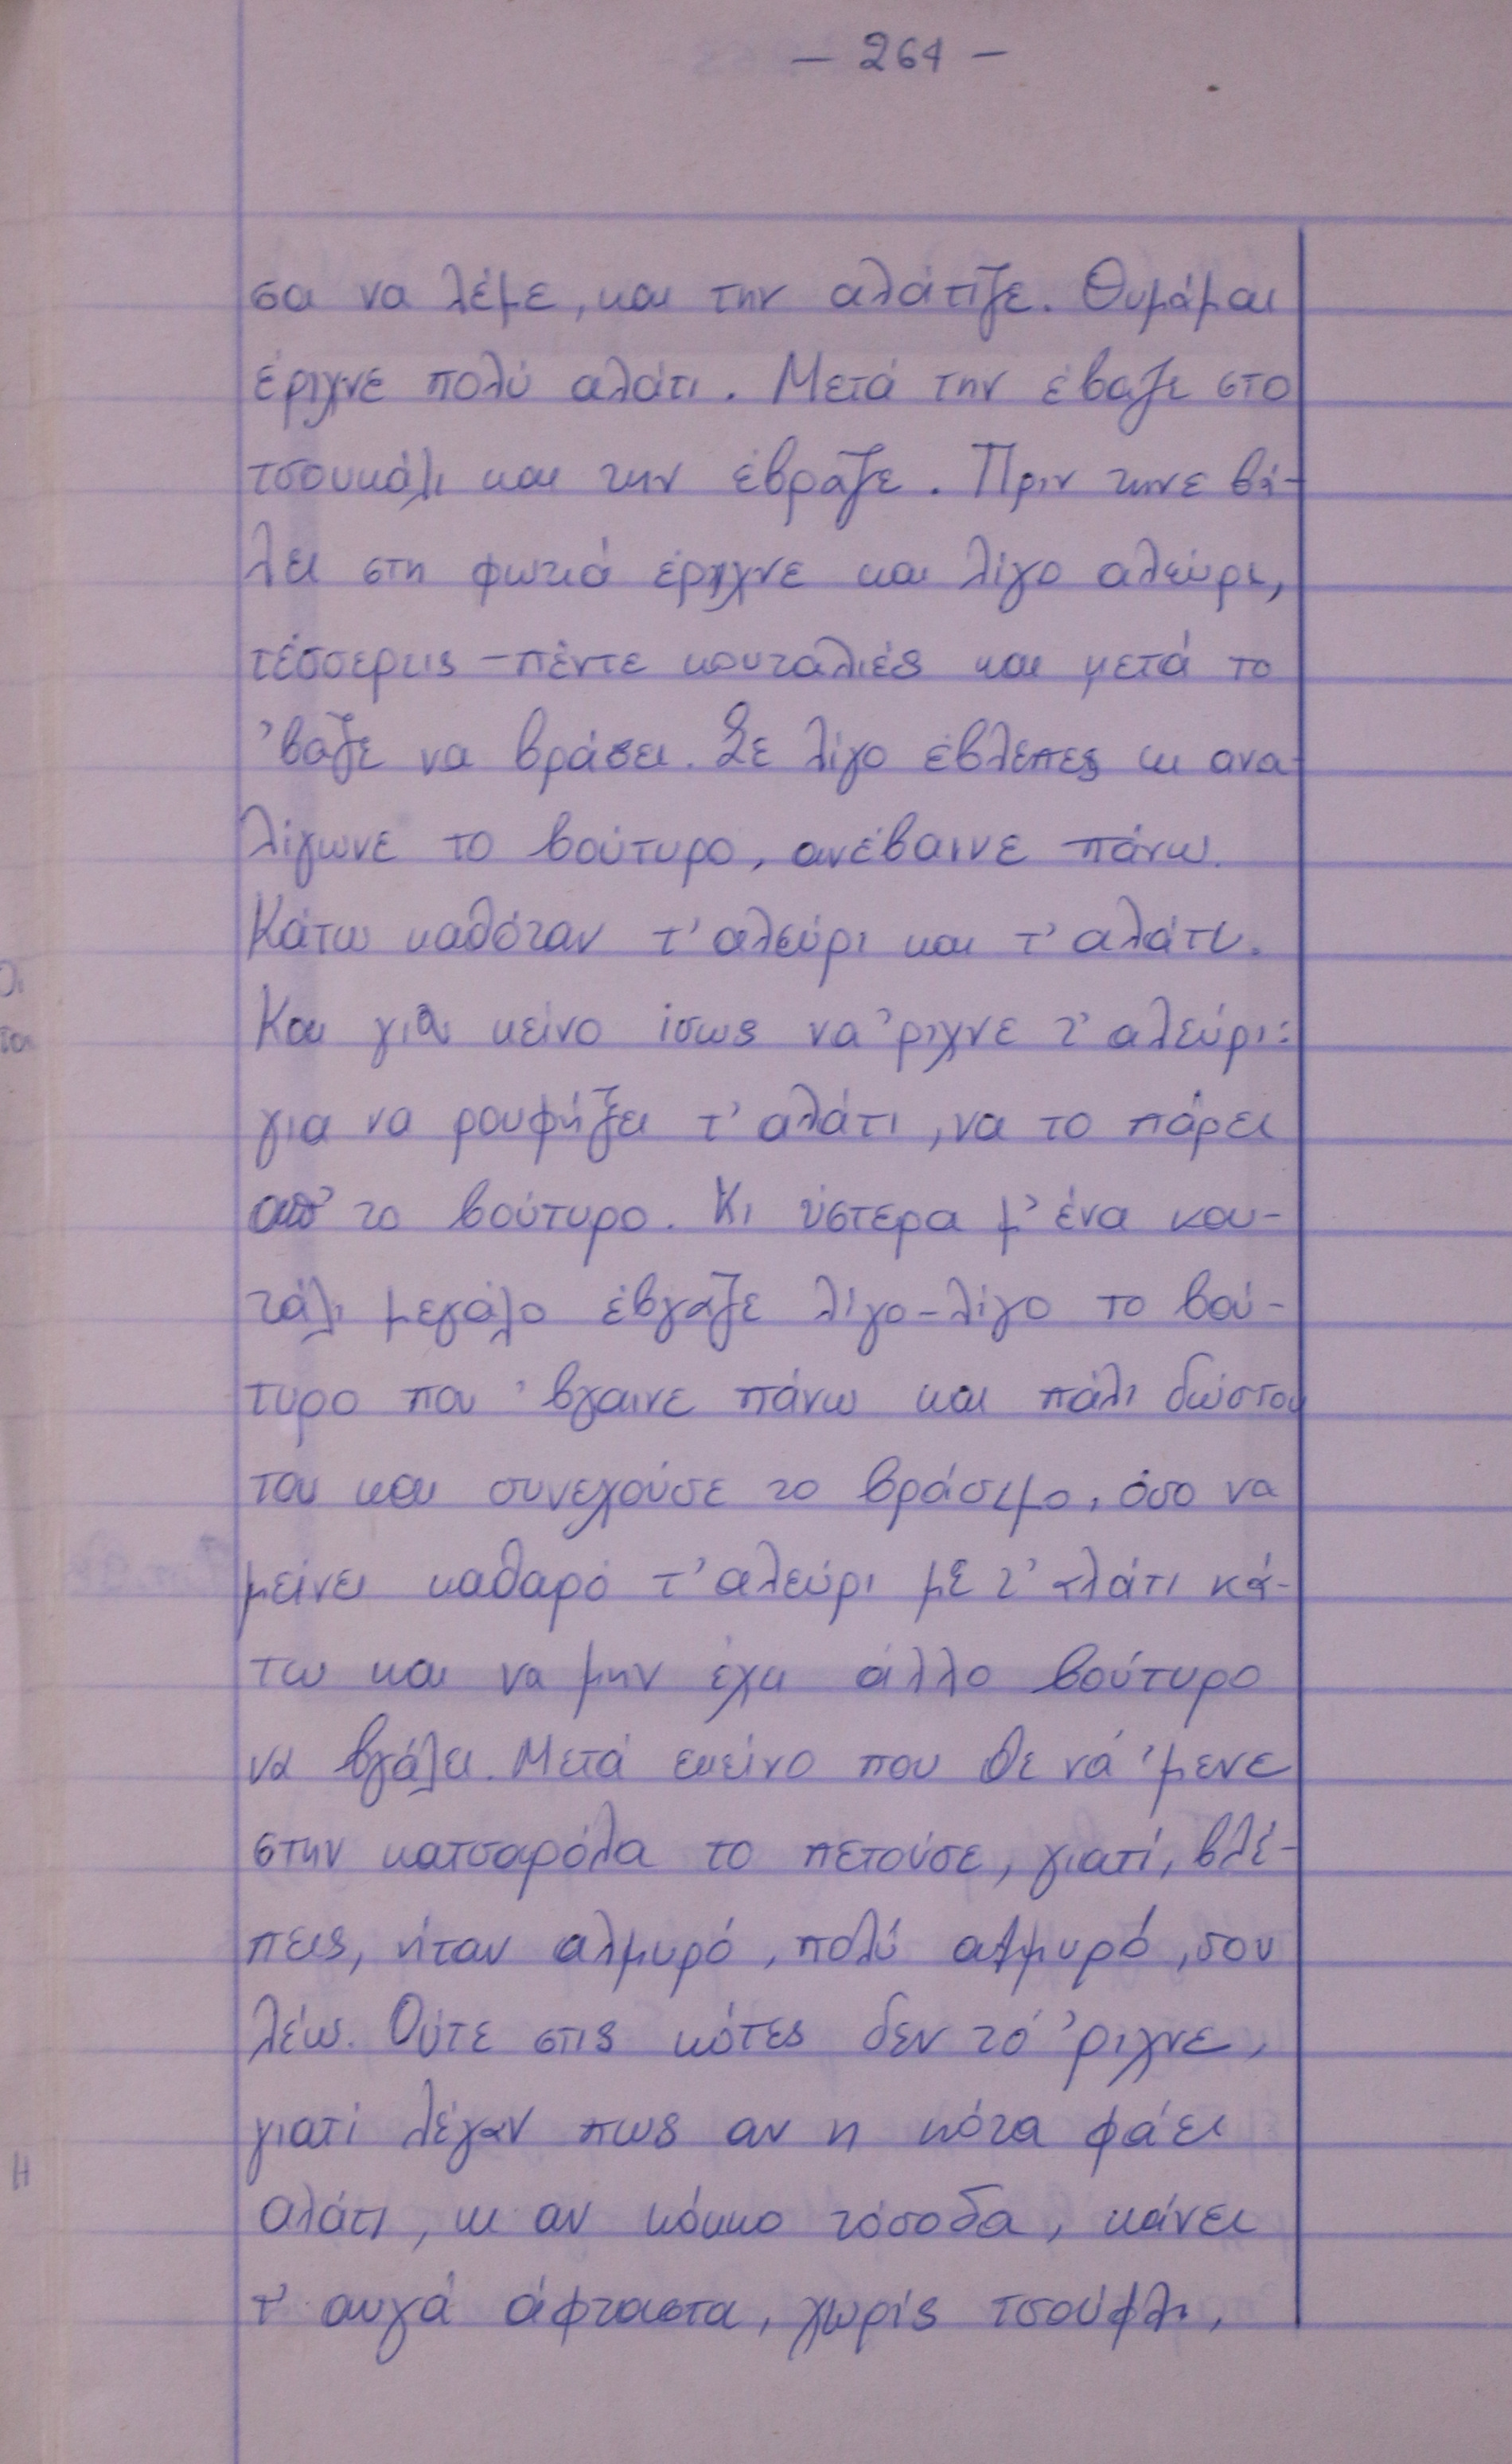 — 264 —
σα να λέμε, και την αλάτιζε. Θυμάμαι
έριχνε πολύ αλάτι. Μετά την έβαζε στο
τσουκάλι και την έβραζε. Πριν τηνε βά-
λει στη φωτιά έριχνε και λίγο αλεύρι,
τέσσερεις-πέντε κουταλιές και μετά το
'βαζε να βράσει. Σε λίγο έβλεπες κι ανα-
λίγωνε το βούτυρο, ανέβαινε πάνω.
Κάτω καθόταν τ' αλεύρι και τ' αλάτι.
Και για κείνο ίσως να 'ριχνε τ' αλεύρι:
για να ρουφήξει τ' αλάτι, να το πάρει
απ' το βούτυρο. Κι ύστερα μ' ένα κου-
τάλι μεγάλο έβγαζε λίγο-λίγο το βού-
τυρο που 'βγαινε πάνω και πάλι δώστου
του και συνεχούσε το βράσιμο, όσο να
μείνει καθαρό τ' αλεύρι με τ' αλάτι κά-
τω και να μην έχει άλλο βούτυρο
να βγάλει. Μετά εκείνο που θε νά 'μενε
στην κατσαρόλα το πετούσε, γιατί, βλέ-
πεις, ήταν αλμυρό, πολύ αλμυρό, σου
λέω. Ούτε στις κότες δεν τό 'ριχνε,
γιατί λέγαν πως αν η κότα φάει
αλάτι, κι αν κόκκο τόσοδα, κάνει
τ' αυγά άφταστα, χωρίς τσούφλι,